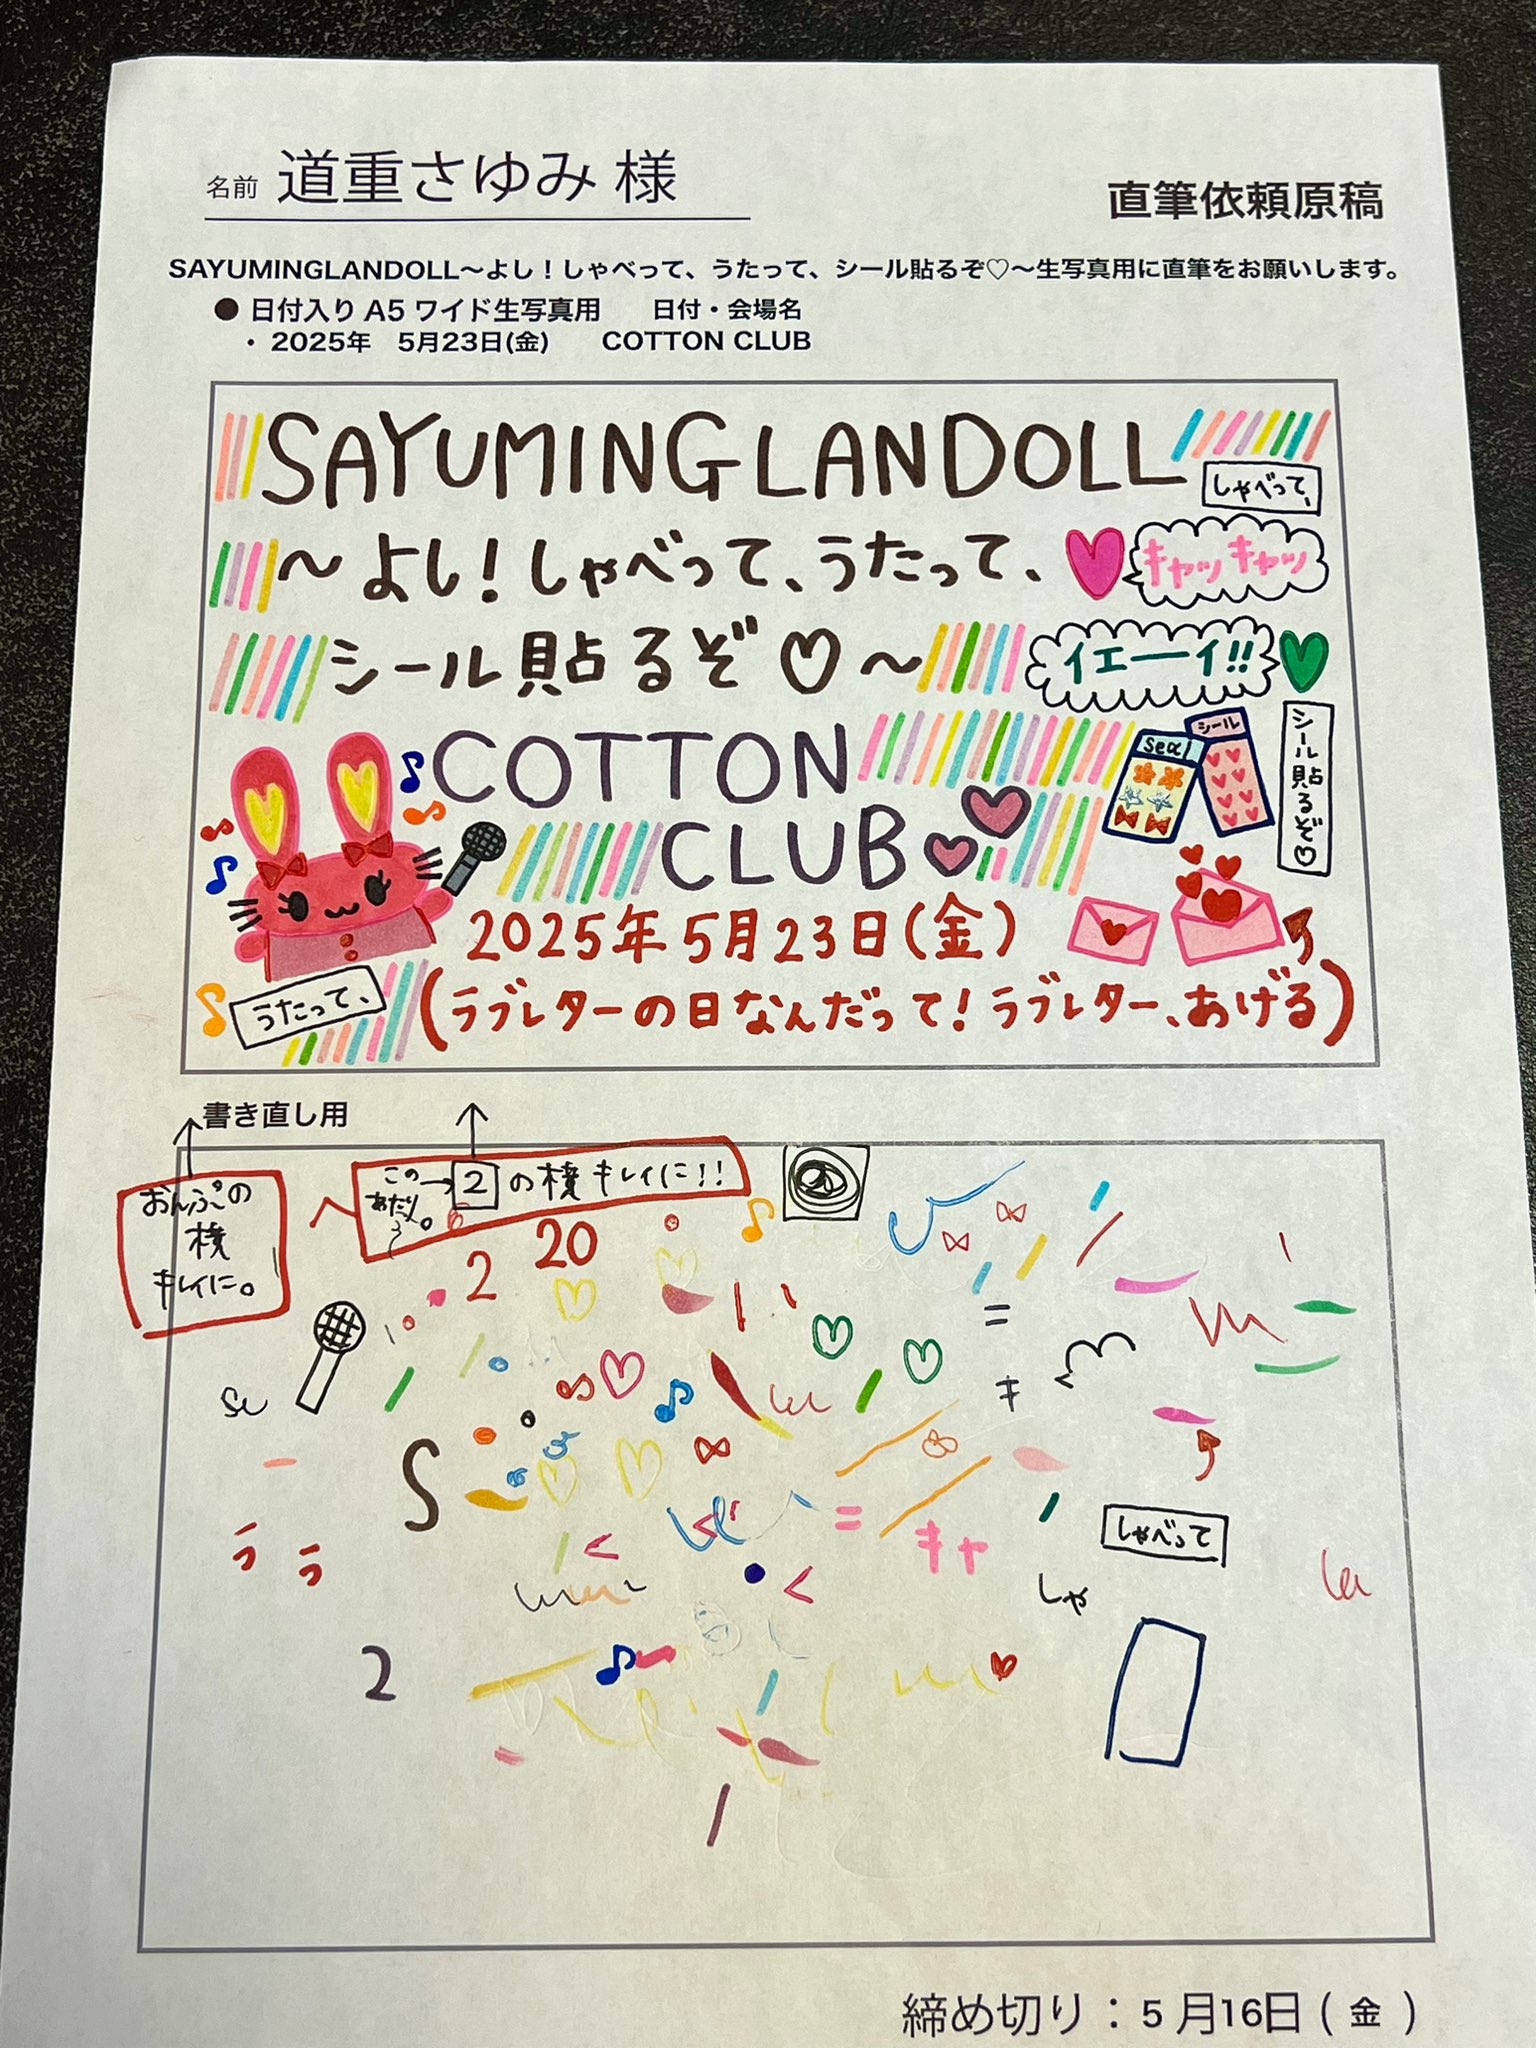 名前 道重さゆみ 様
直筆依頼原稿
SAYUMINGLANDOLL〜よし！しゃべって、うたって、シール貼るぞ♡〜生写真用に直筆をお願いします。
● 日付入り A5 ワイド生写真用 日付・会場名
・ 2025年 5月23日(金) COTTON CLUB
SAYUMINGLANDOLL
しゃべって、
〜よし！しゃべって、うたって、
キャッキャッ
シール貼るぞ♡〜
イエーイ!!
COTTON
seal
シール
シール貼るぞ♡
CLUB
2025年5月23日(金)
うたって、
(ラブレターの日なんだって！ラブレター、あげる)
書き直し用
おんぷの
横
キレイに。
この
あたり。
→2の横キレイに!!
20
2
S
キ
キャ
しゃべって
う
う
しゃ
2
締め切り：5月16日(金)